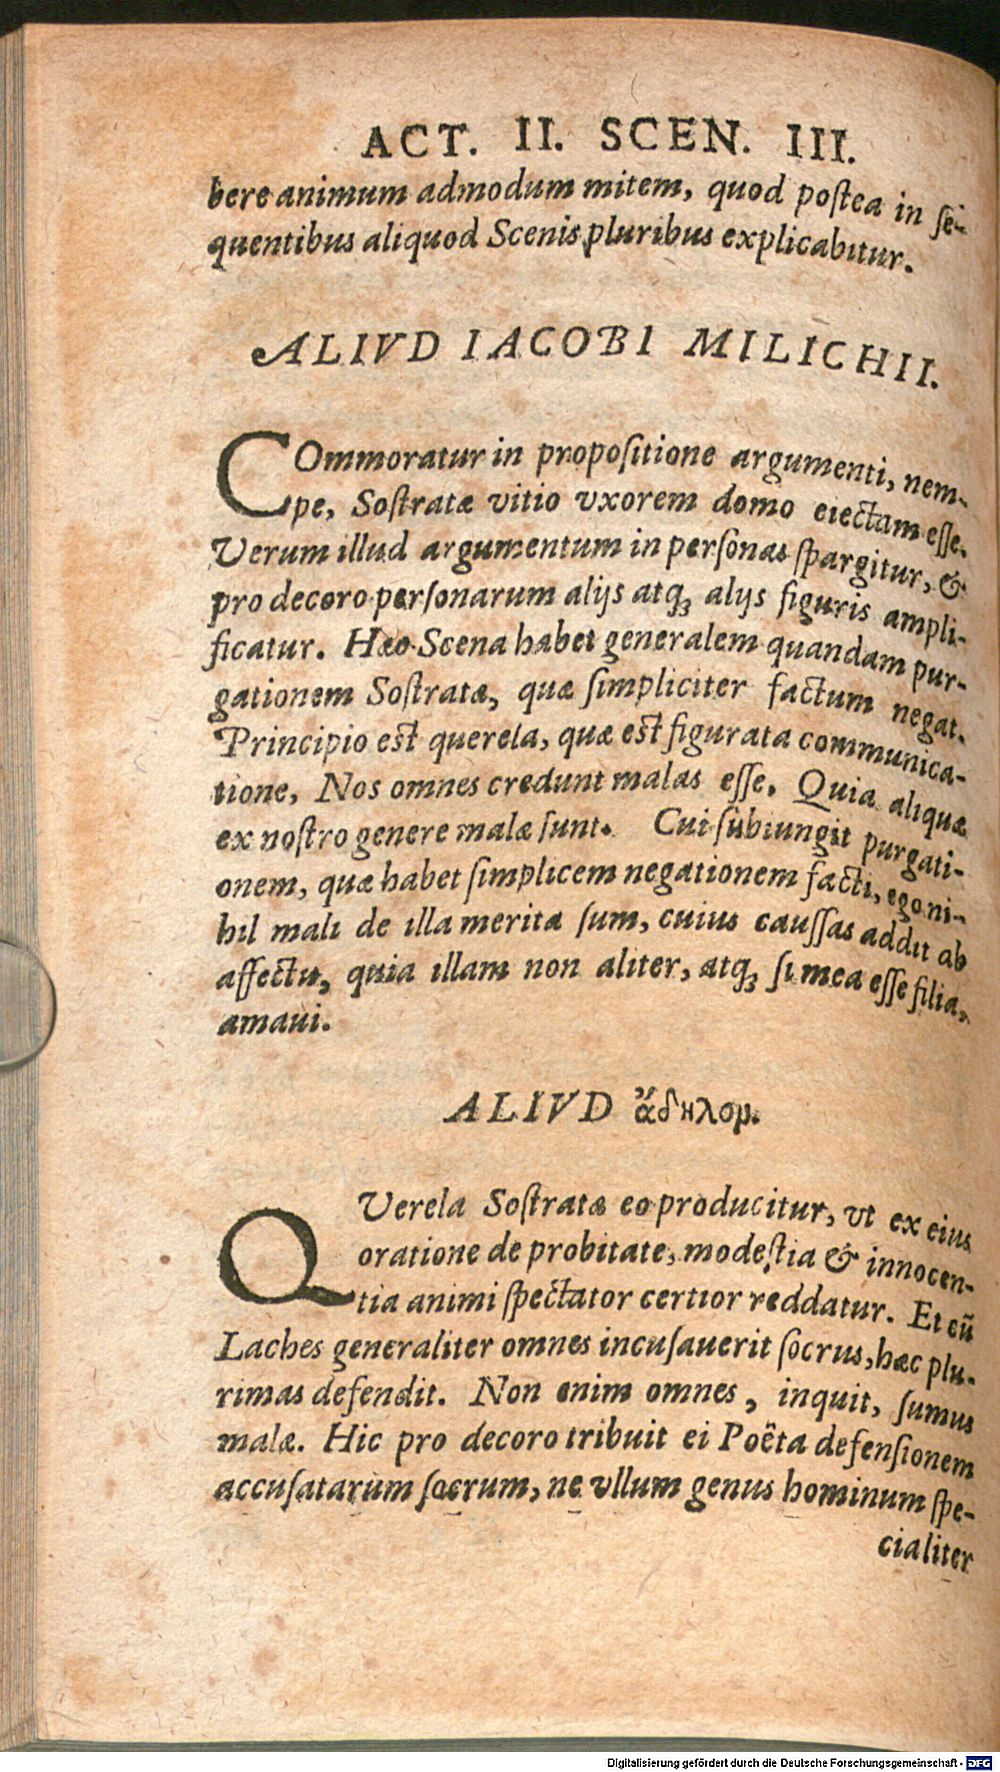 ACT. II. SCEN. III.
bere animum admodum mitem, quod poſtea in ſe-
quentibus aliquod Scenis pluribus explicabitur.
ALIVD IACOBI MILICHII.
COmmoratur in propoſitione argumenti, nem-
pe, Soſtratæ vitio vxorem domo eiectam eſſe.
Verum illud argumentum in perſonas ſpargitur, &
pro decoro perſonarum alijs atqꝫ alijs figuris ampli-
ficatur. Hæc Scena habet generalem quandam pur-
gationem Soſtratæ, quæ ſimpliciter factum negat.
Principio est querela, quæ est figurata communica-
tione, Nos omnes credunt malas eſſe. Quia aliquæ
ex noſtro genere malæ ſunt. Cui ſubiungit purgati-
onem, quæ habet ſimplicem negationem facti, ego ni-
hil mali de illa merita ſum, cuius cauſſas addit ab
affectu, quia illam non aliter, atqꝫ ſi mea eſſe filia,
amaui.
ALIVD ἄδηλομ.
QVerela Soſtratæ eo producitur, vt ex eius
oratione de probitate, modeſtia & innocen-
tia animi ſpectator certior reddatur. Et cū
Laches generaliter omnes incuſauerit ſocrus, hæc plu-
rimas defendit. Non enim omnes, inquit, ſumus
malæ. Hic pro decoro tribuit ei Poëta defenſionem
accuſatarum ſocrum, ne vllum genus hominum ſpe-
cialiter
Digitalisierung gefördert durch die Deutsche Forschungsgemeinschaft - DFG